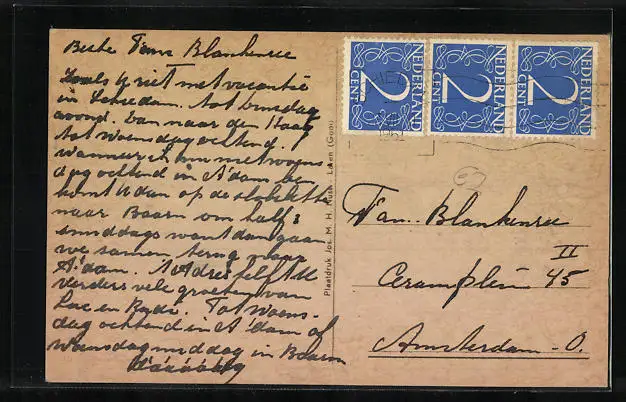 Beste Fam Blankenree
Zooals U ziet met vacantie
in Schiedam. Tot dinsdag
avond. Dan naar den Haag
tot Woensdagochtend.
Wanneer ik nu met woens
dagochtend in A'dam ben
komt U dan op de
naar Baarn om half 3
smiddags want dan gaan
we samen terug naar
A'dam. Adres
verders vele groeten van
en Tot Woens-
dagochtend in A'dam of
Woensdagmiddag in Baarn
NEDERLAND
2
CENT
NEDERLAND
2
CENT
NEDERLAND
2
CENT
Plaatdruk Jos. M. H. Laren (Gooi)
Fam. Blankenree
II
Ceramplein 45
Amsterdam-O.